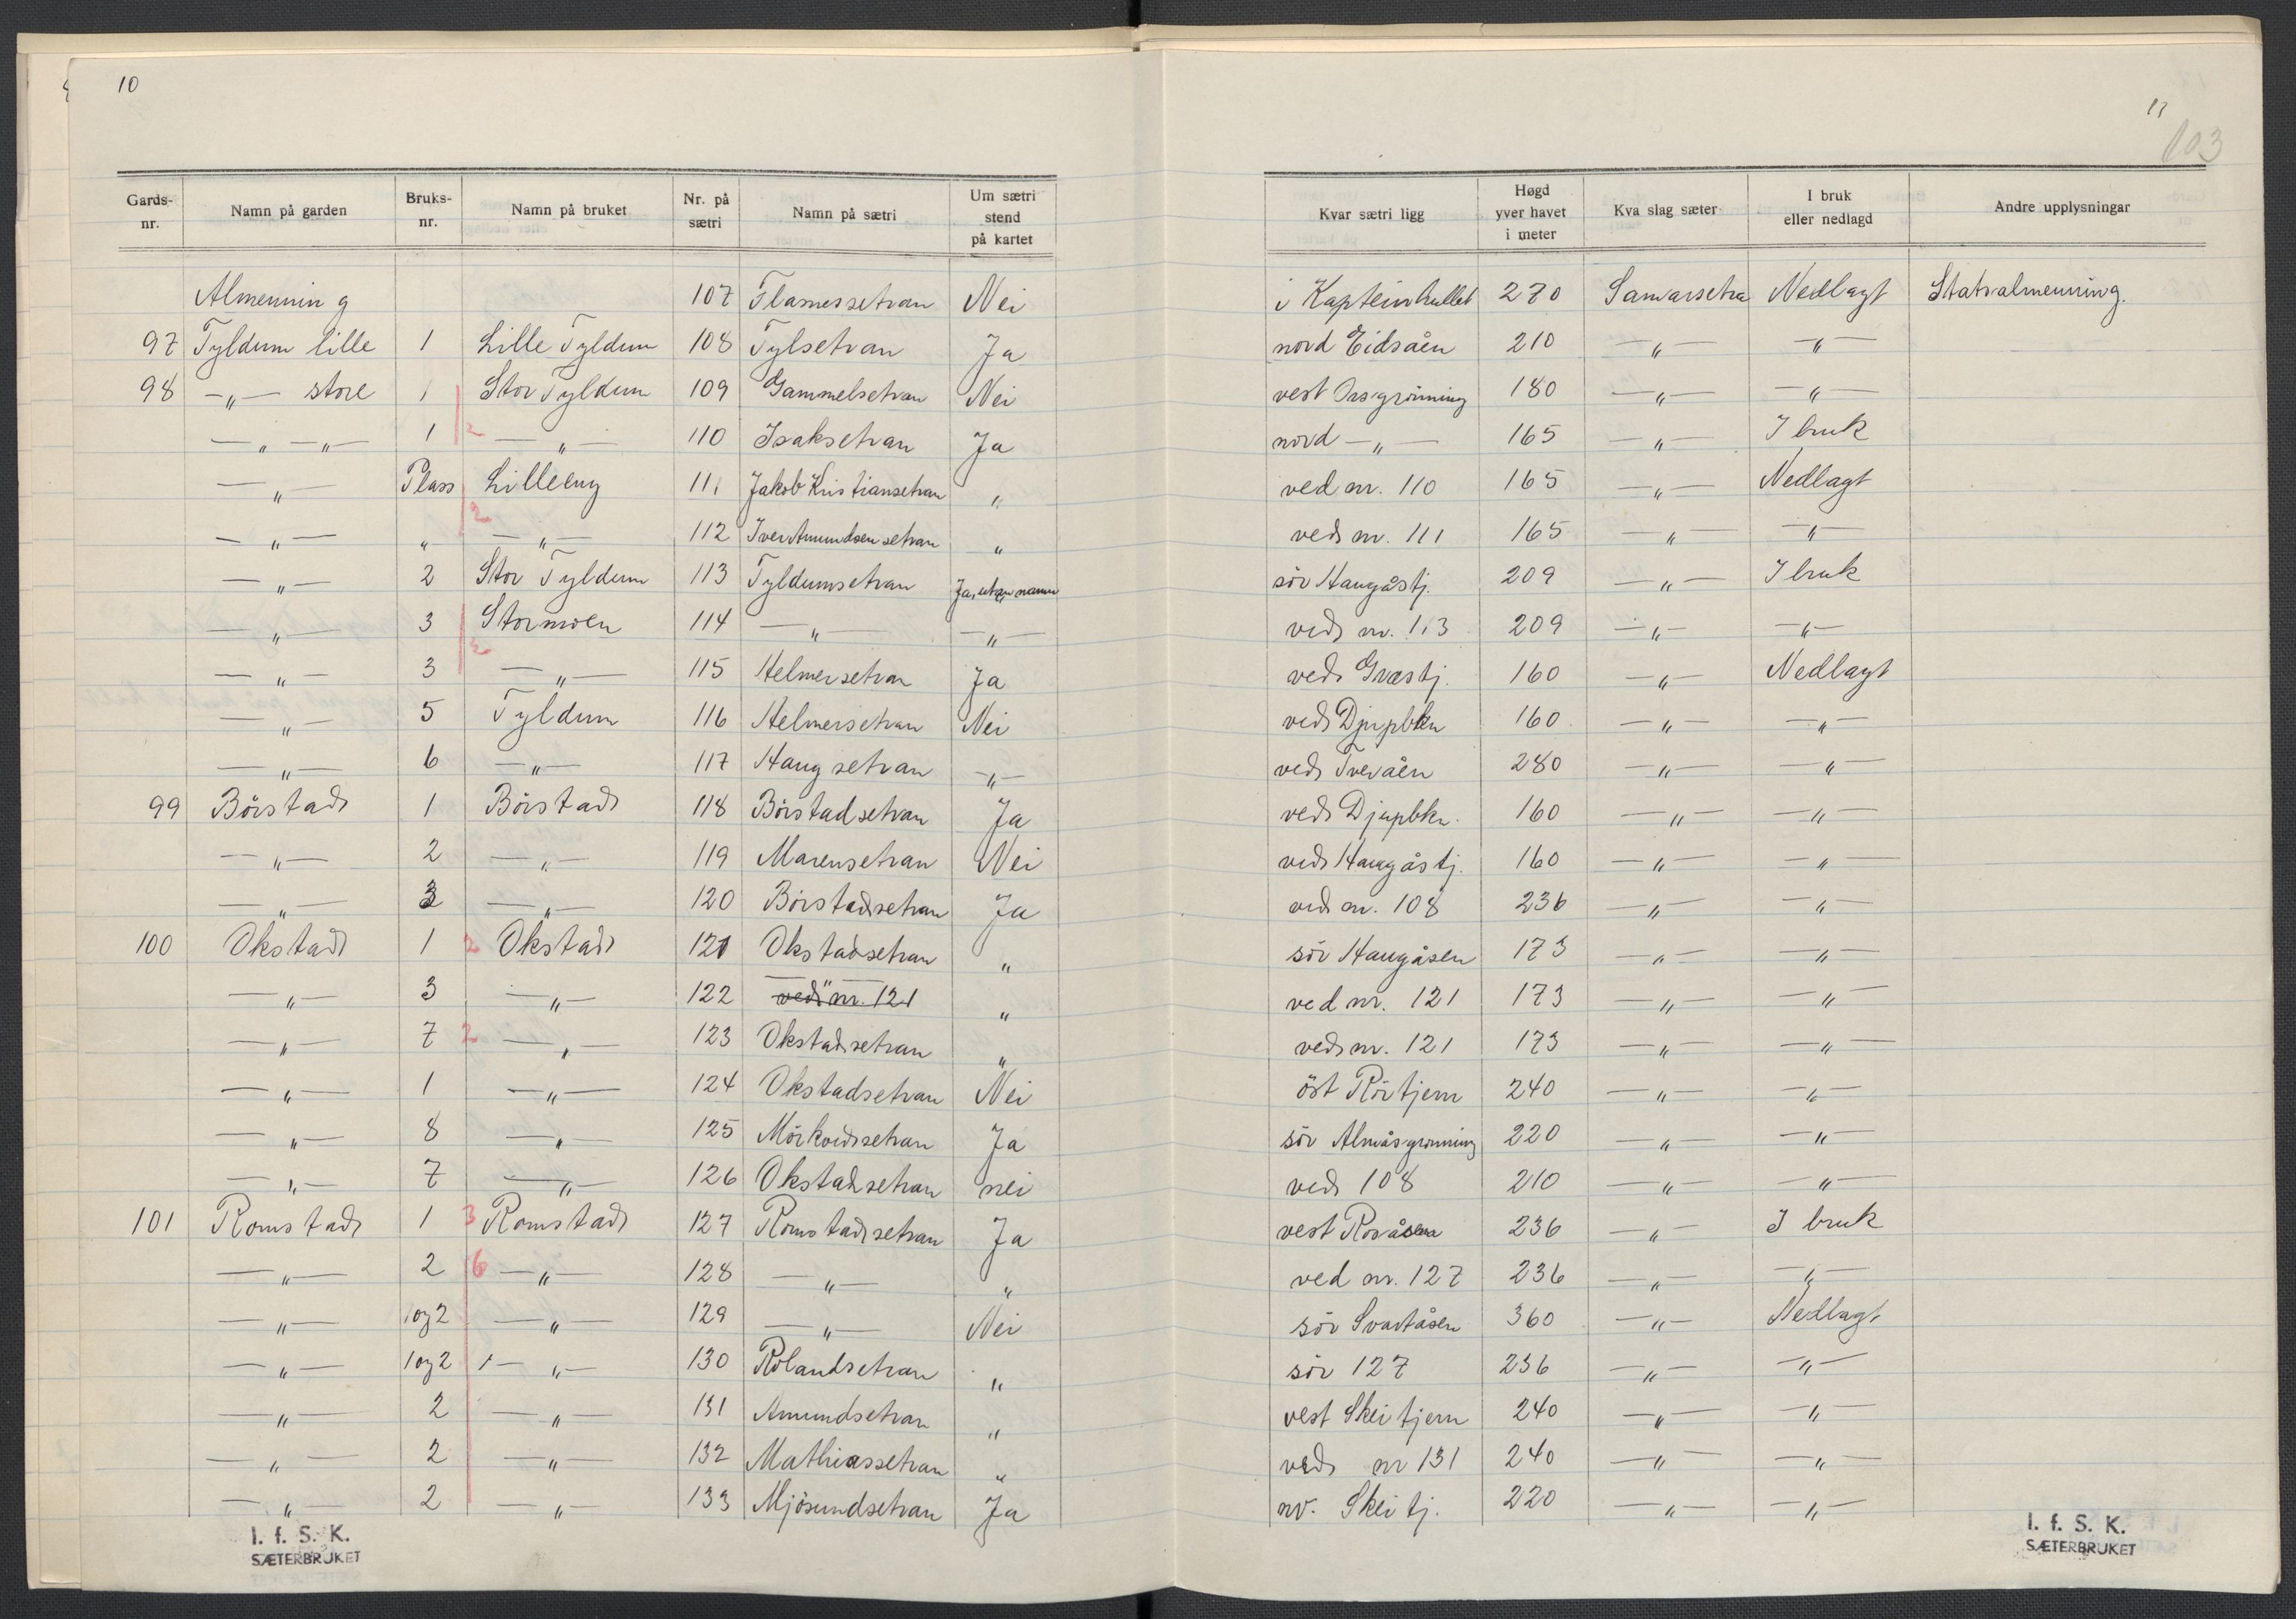 10
11
103
Gards-nr. Namn på garden Bruks-nr. Namn på bruket Nr. på sætri Namn på sætri Um sætri stend på kartet Kvar sætri ligg Høgd yver havet i meter Kva slag sæter I bruk eller nedlagd Andre upplysningar
Almenning 107 Flamessetran Nei i Kapteinhullet 270 Samarsetra Nedlagt Statsalmenning.
97 Tyldum lille 1 Lille Tyldum 108 Tylsetran Ja nord Eidsåen 210 —„— —„—
98 —„— store 1 Stor Tyldum 109 Gammelsetran Nei vest Orsgrönning 180 —„— —„—
—„— —„— 1 2 —„— 110 Isaksetran Ja nord —„— 165 —„— I bruk
—„— Plass Lilleeng 111 Jakob Kristiansetran „ ved nr. 110 165 —„— Nedlagt
—„— „ 2 —„— 112 Iver Amundsen setran „ ved nr. 111 165 —„— —„—
—„— 2 Stor Tyldum 113 Tyldumsetran Ja, utan namn sör Haugåstj. 209 —„— I bruk
—„— 3 Stormoen 114 —„— —„— ved nr. 113 209 —„— —„—
—„— 3 2 —„— 115 Helmersetran Ja ved Græstj. 160 —„— Nedlagt
—„— 5 Tyldum 116 Helmersetran Nei ved Djupbkn 160 —„— —„—
—„— 6 —„— 117 Haugsetran —„— ved Tveråen 280 —„— —„—
99 Börstad 1 Börstad 118 Börstadsetran Ja ved Djupbkn. 160 —„— —„—
—„— 2 —„— 119 Marensetran Nei ved Haugåstj. 160 —„— —„—
—„— 3 —„— 120 Börstadsetran Ja ved nr. 108 236 —„— —„—
100 Okstad 1 2 Okstad 121 Okstadsetran „ sör Haugåsen 173 —„— —„—
—„— 3 —„— 122 —„— ved nr. 121 „ ved nr. 121 173 —„— —„—
—„— 7 2 —„— 123 Okstadsetran „ ved nr. 121 173 —„— —„—
—„— 1 —„— 124 Okstadsetran Nei öst Rörtjern 240 —„— —„—
—„— 8 —„— 125 Mörkvedsetran Ja sör Almåsgrönning 220 —„— —„—
—„— 7 —„— 126 Okstadsetran nei ved 108 210 —„— —„—
101 Romstad 1 3 Romstad 127 Romstadsetran Ja vest Roråsen 236 —„— I bruk
—„— 2 6 —„— 128 —„— „ ved nr. 127 236 —„— —„—
—„— 1og2 —„— 129 —„— Nei sör Svartåsen 360 —„— Nedlagt
—„— 1og2 —„— 130 Rolandsetran „ sör 127 236 —„— —„—
—„— 2 —„— 131 Amundsetran „ vest Skeitjern 240 —„— —„—
—„— 2 —„— 132 Mathiassetran „ ved nr 131 240 —„— —„—
—„— 2 —„— 133 Mjösundsetran Ja nv. Skeitj. 220 —„— —„—
I. f. S. K.
SÆTERBRUKET
I. f. S. K.
SÆTERBRUKET